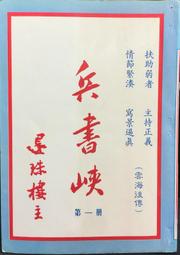 扶助弱者　主持正義
情節緊湊　寫景逼真
（雲海注傳）
兵書峽
第一冊
還珠樓主